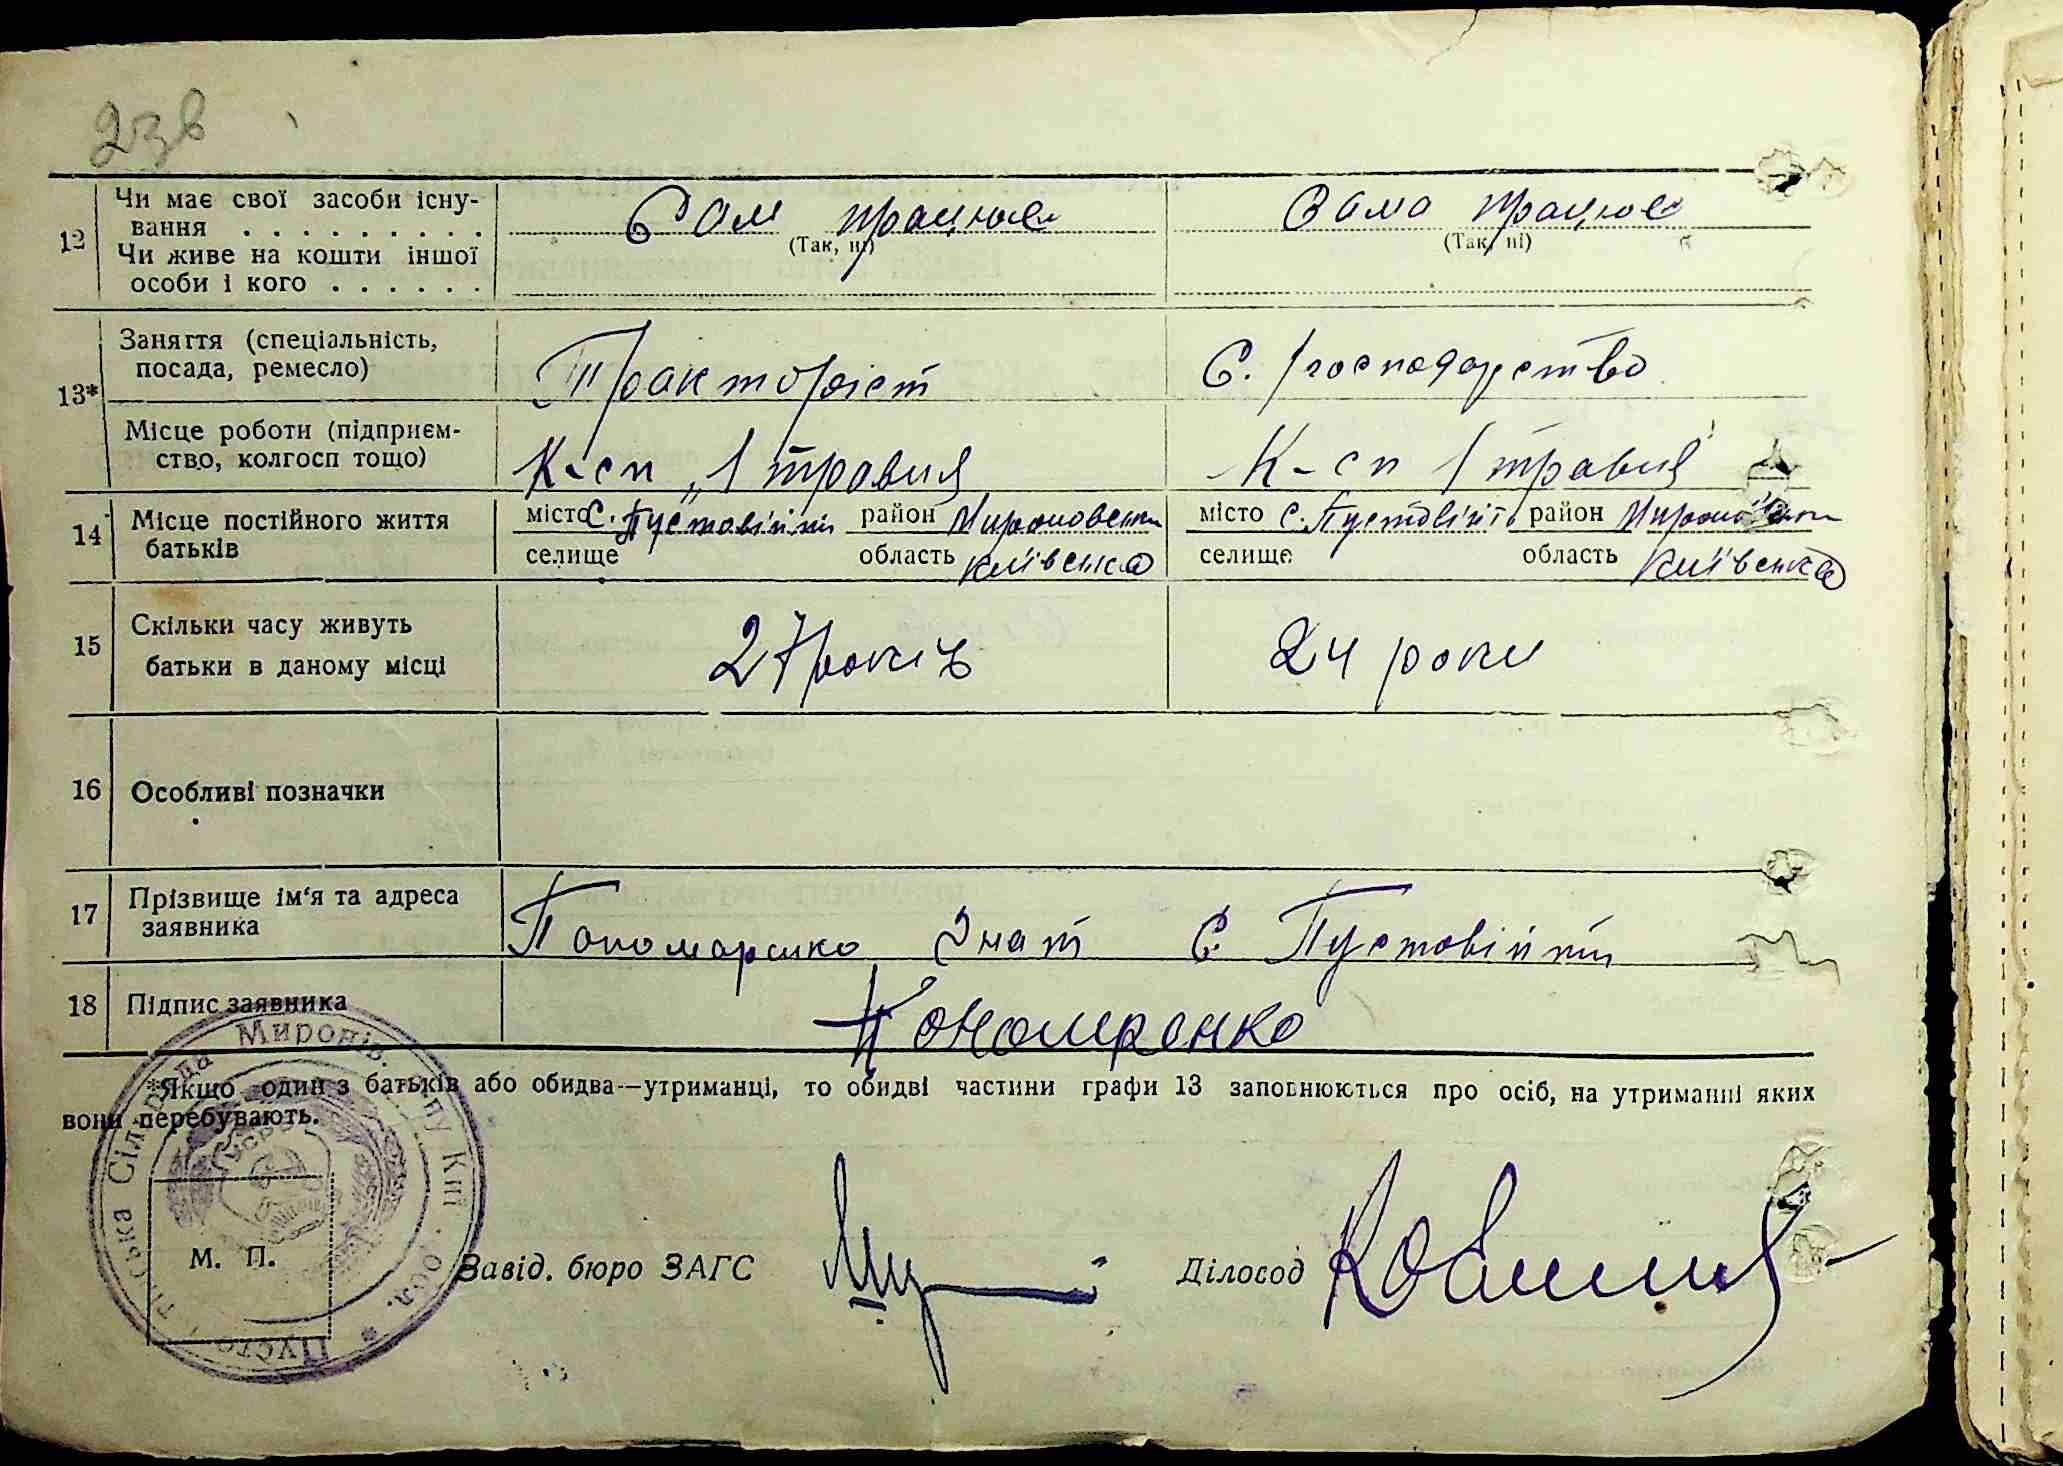 23в
12 Чи має свої засоби існу-
вання . . . . . . . . . . Сам працює Сама працює
(Так, ні) (Так, ні)
Чи живе на кошти іншої
особи і кого . . . . . .
13* Заняття (спеціальність,
посада, ремесло) Тракторіст С. господарство
Місце роботи (підприєм-
ство, колгосп тощо) К-сп „1 травня К-сп 1 травня
14 Місце постійного життя
батьків
місто с. Пустовійти район Мироновськи місто с. Пустовійти район
селище область Київська селище область Київська
15 Скільки часу живуть
батьки в даному місці 27 років 24 роки
16 Особливі позначки
17 Прізвище ім'я та адреса
заявника Пономаренко Гнат С. Пустовійти
18 Підпис заявника Пономренко
*Якщо один з батьків або обидва—утриманці, то обидві частини графи 13 заповнюються про осіб, на утриманні яких
вони перебувають.
М. П. Завід. бюро ЗАГС Діловод